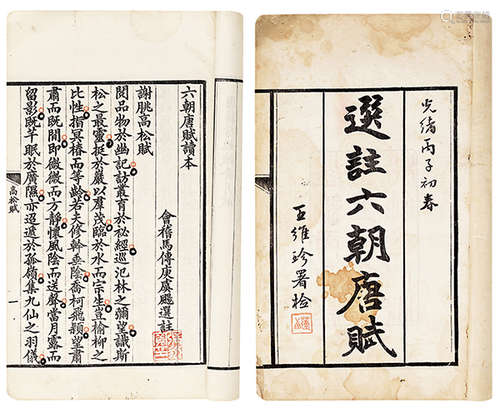 光緒丙子初春
選註六朝唐賦
王維珍署檢
六朝唐賦讀本
會稽馬傳庚虞颺選註
謝朓高松賦
閱品物於幽記訪叢育於秘經巡汜林之彌望識斯
松之最靈挺於巖以群茂臨於水而宗生豈榆柳之
比性指冥椿而等齡若夫修幹垂陰喬柯飛穎望肅
肅而既閒即微微而方靜懷風陰而送聲當月露而
留影既芊眠於廣隰亦迢遞於孤嶺集九仙之羽儀
高松賦
一